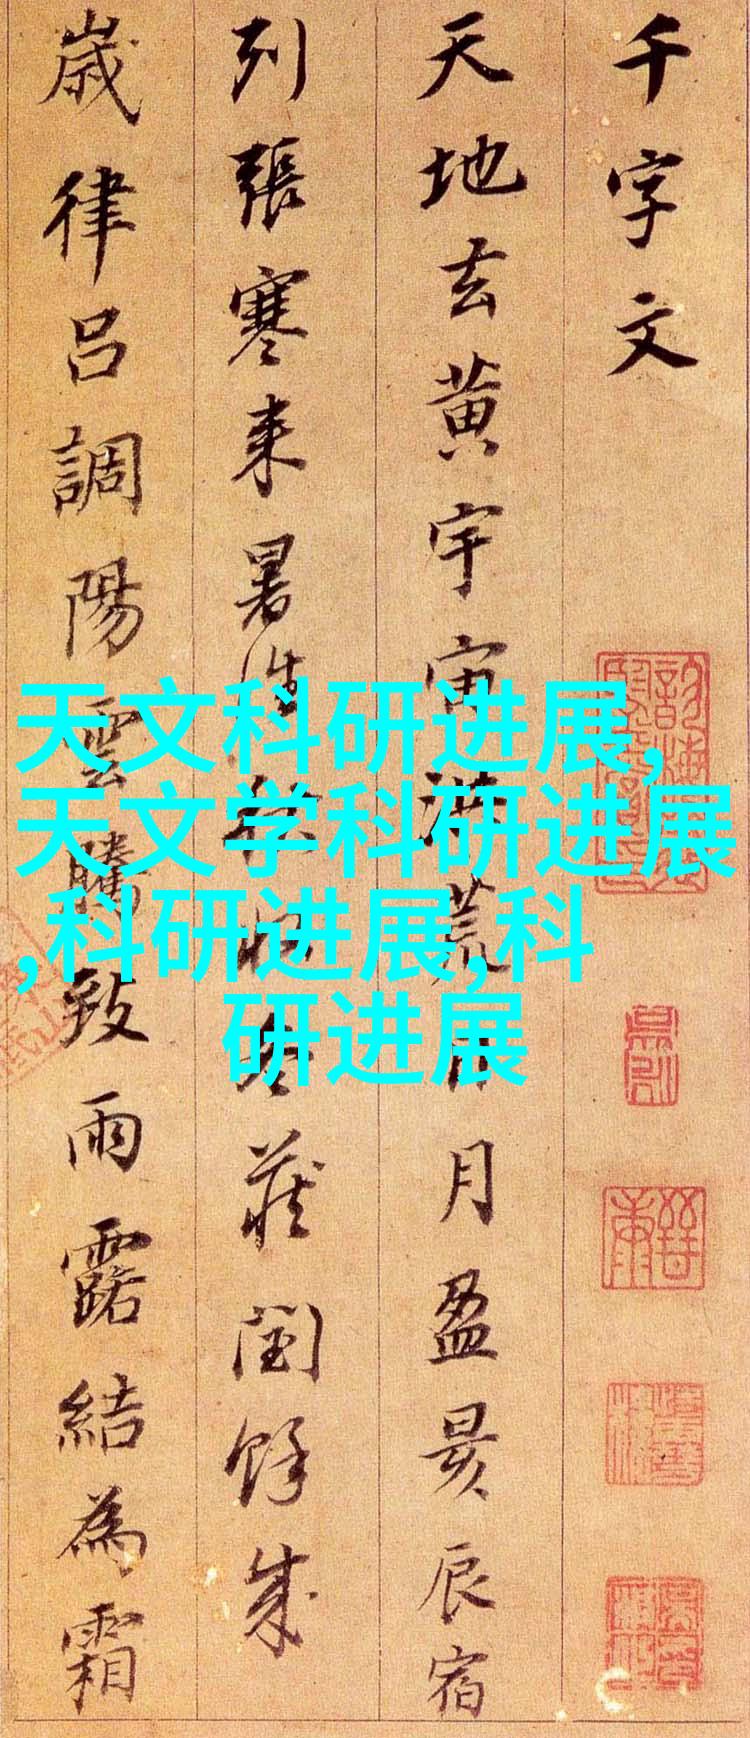 千字文
天地玄黄宇宙洪荒日月盈昃辰宿
列張寒来暑往秋收冬蔵閏餘成
歲律吕調陽雲騰致雨露結為霜
天文科研进展,
天文学科研进展
,科研进展,科
研进展